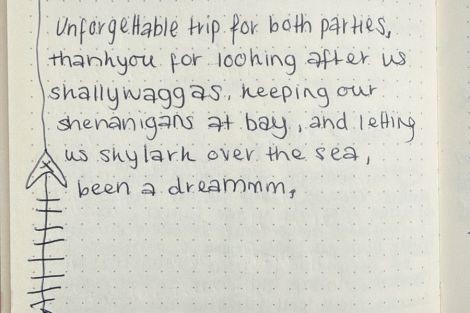 Unforgettable trip for both parties,
thankyou for looking after us
shallywaggas, keeping our
shenanigans at bay, and letting
us skylark over the sea,
been a dreammm,